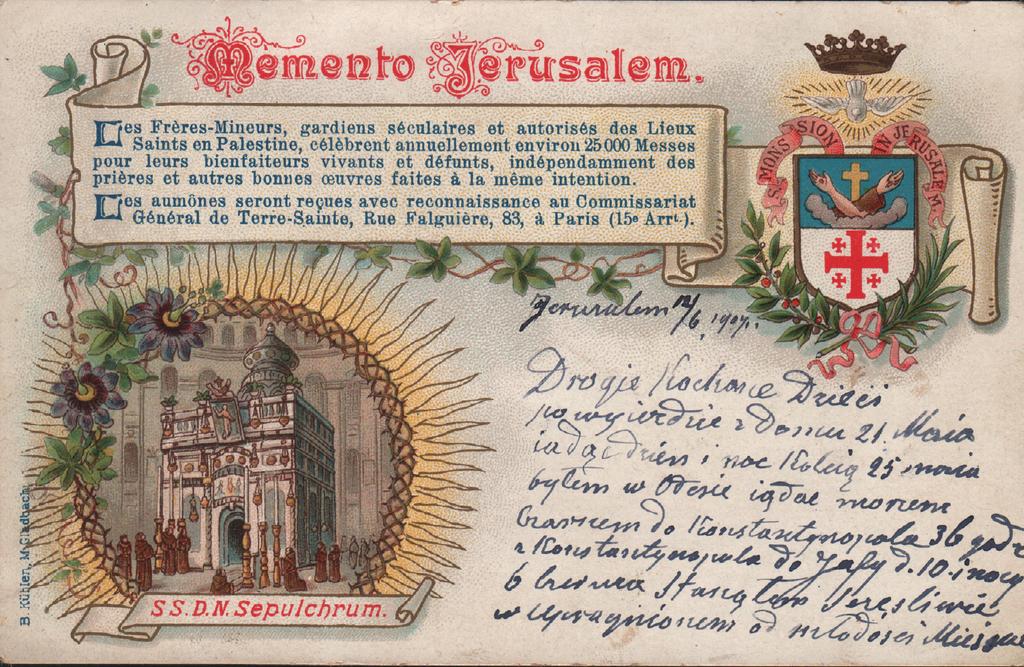 Memento Jerusalem.
Les Frères-Mineurs, gardiens séculaires et autorisés des Lieux
Saints en Palestine, célèbrent annuellement environ 25 000 Messes
pour leurs bienfaiteurs vivants et défunts, indépendamment des
prières et autres bonnes œuvres faites à la même intention.
Les aumônes seront reçues avec reconnaissance au Commissariat
Général de Terre-Sainte, Rue Falguière, 83, à Paris (15e Arrt.).
S. MONS SION IN JERUSALEM
Jerusalem 12/6 1907.
Drogie Kochane Dzieci
po wyjeździe z Domu 21 Maia
jadąc dzień i noc Koleią 25 maia
byłem w Odesie jądac morzem
do Konstantynopola 36 godz
z Konstantynopola do Jafy d. 10 i nocy
6 Stanąłem
w upragnionem od młodości
S.S.D.N. Sepulchrum.
B. Kühlen, M. Gladbach.